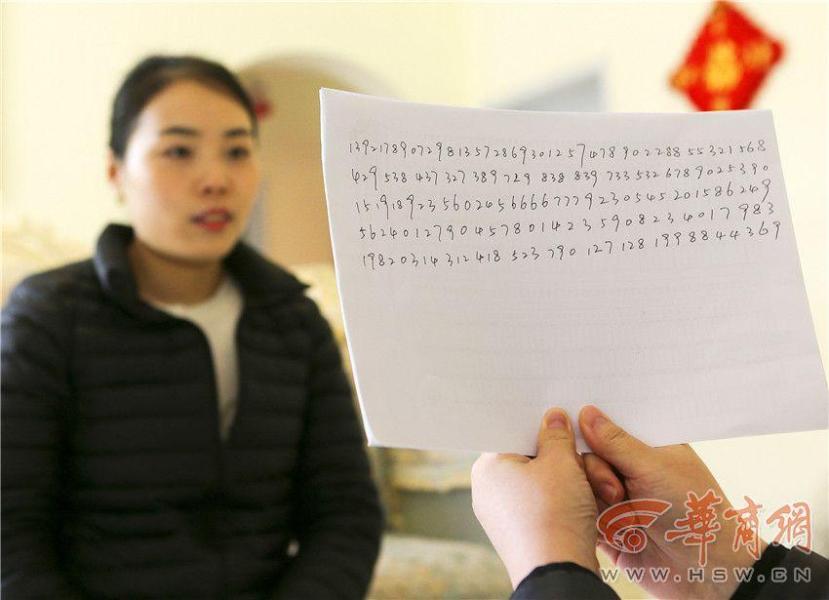 1392178907298135728693012574789022885532 1568
429 538 437 327 389 729 838 839 733 532 678902 5390
151918923560245666677792305452015862 49
562401279045780142359082340179 83
19820314312418 523 790 127 128 1998844369
福
華商網
WWW.HSW.CN